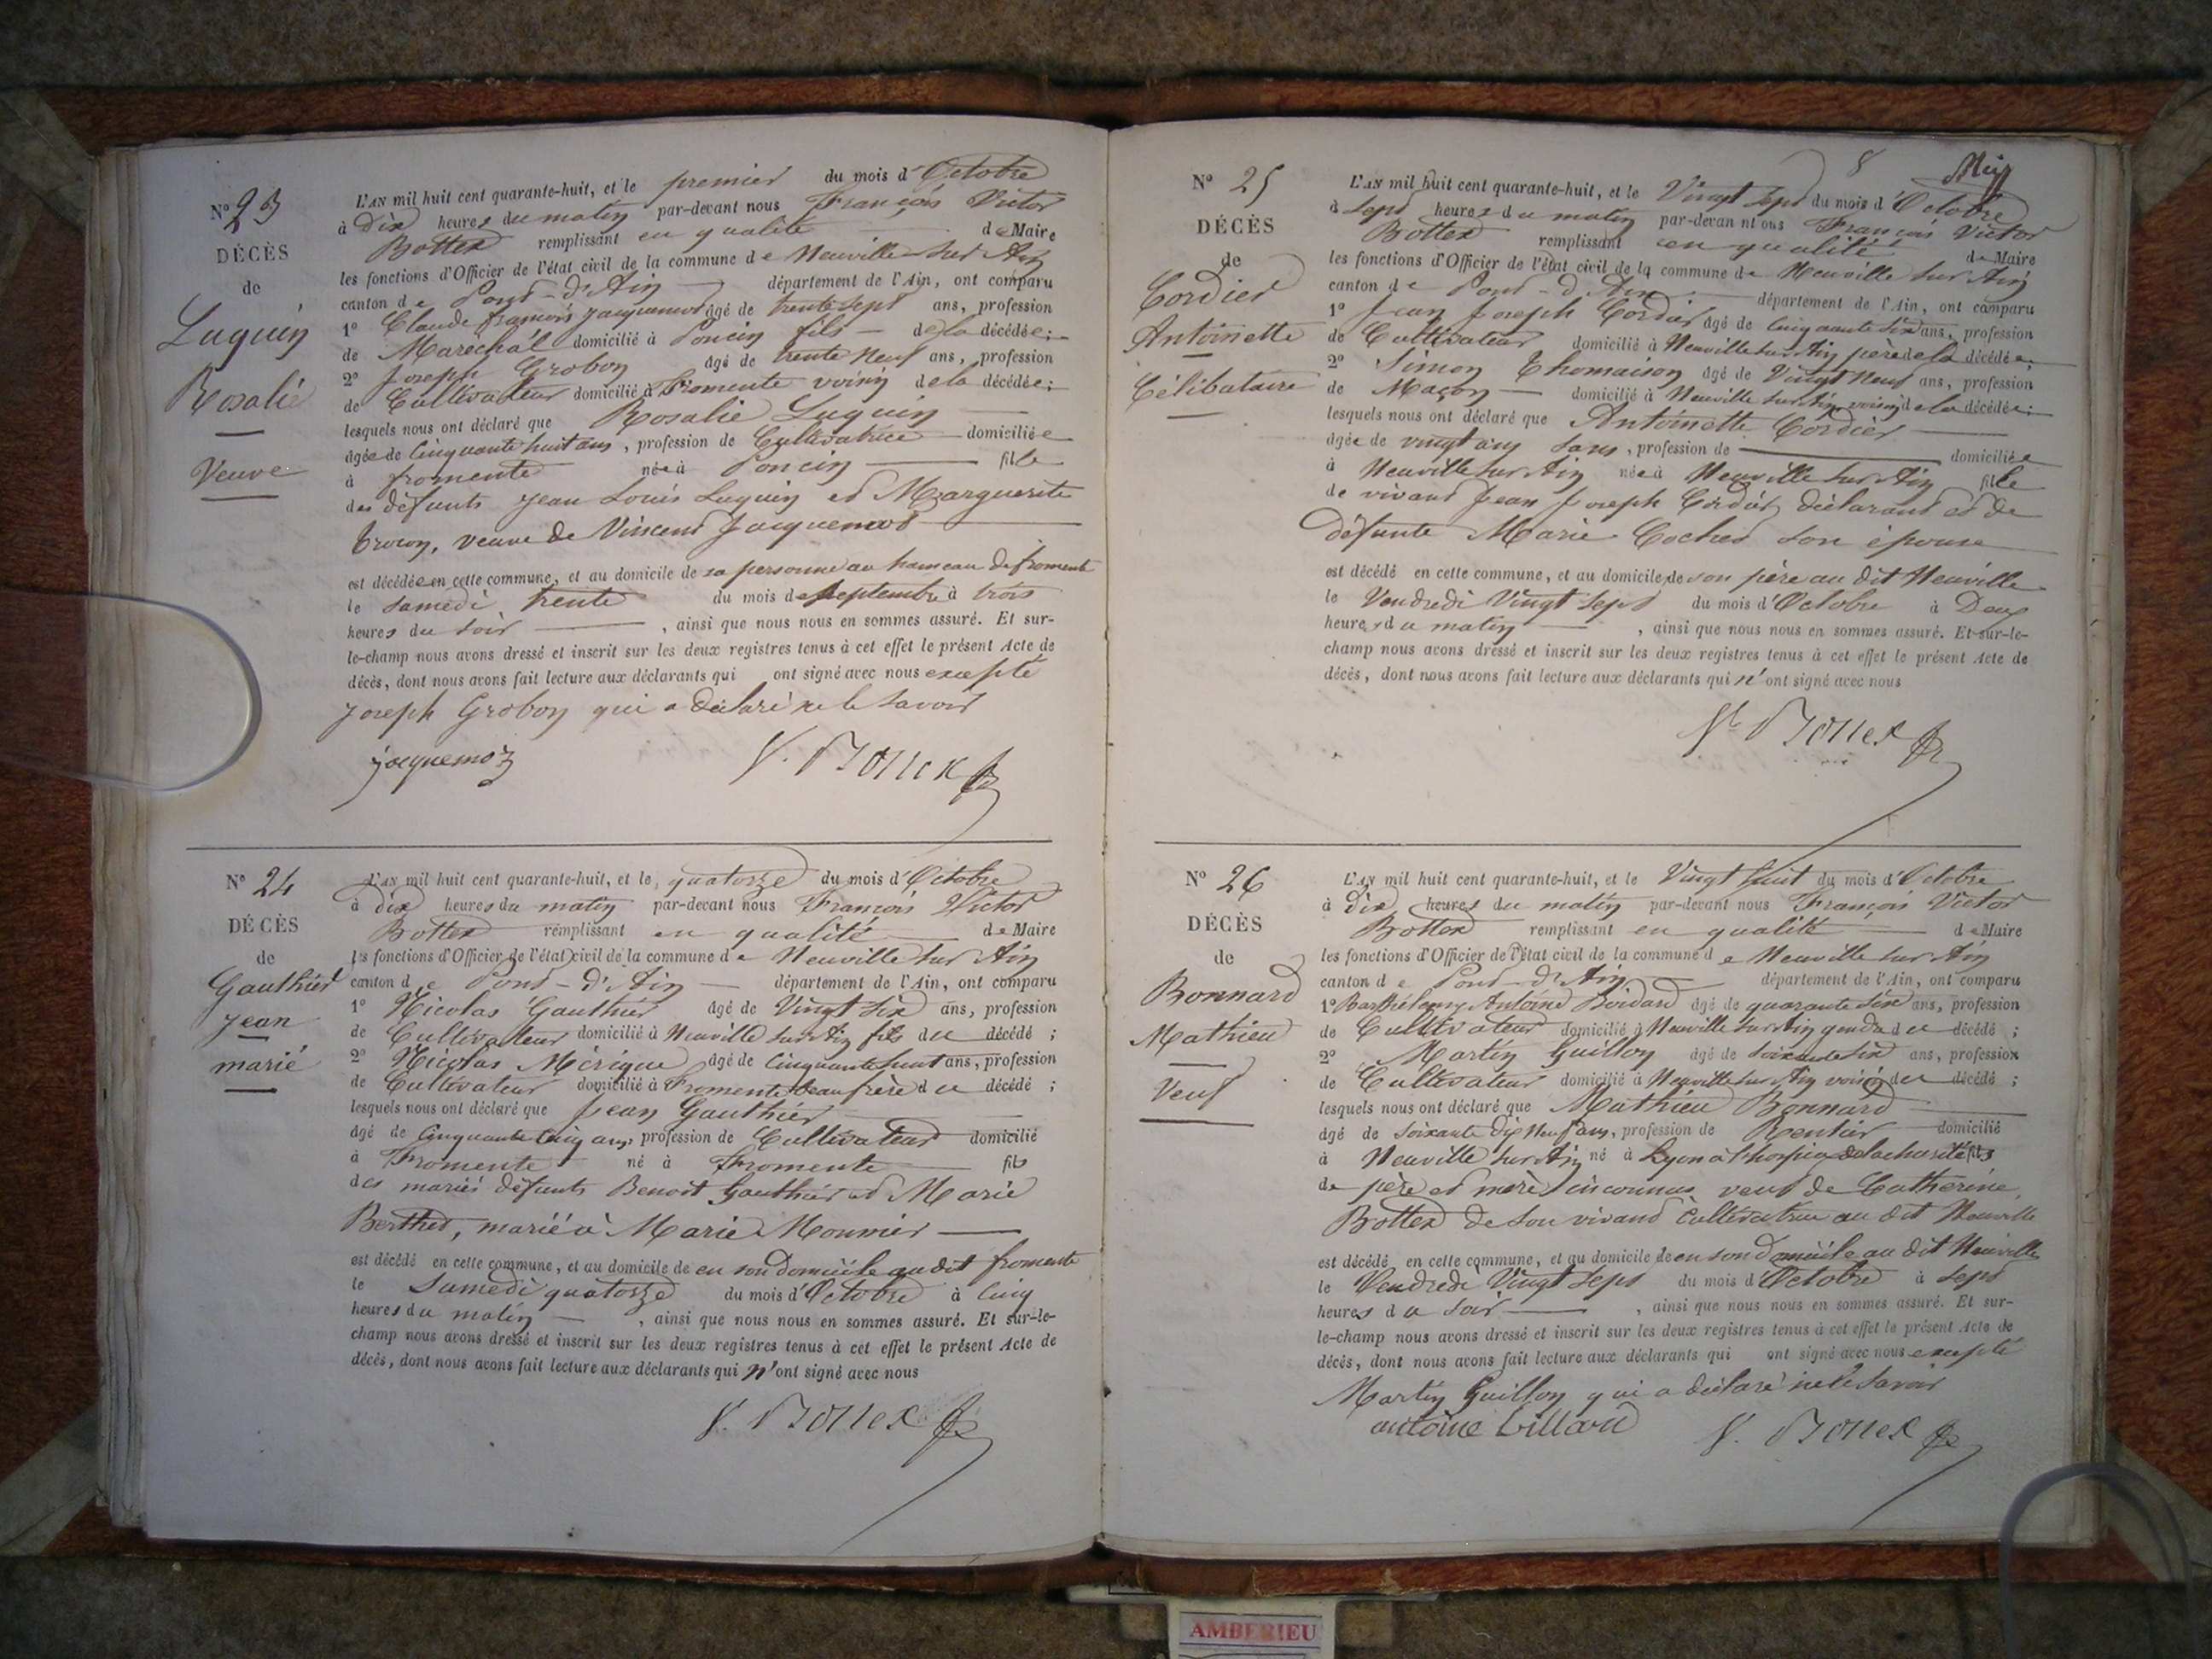 N° 23
DÉCÈS
de
Luquin
Rosalie
Veuve
L'AN mil huit cent quarante-huit, et le premier du mois d'Octobre
à Dix heures du matin par-devant nous François Victor
Bottex remplissant en qualité de Maire
les fonctions d'Officier de l'état civil de la commune de Neuville sur Ain
canton de Pont-d'Ain département de l'Ain, ont comparu
1° Claude françois jacquemot âgé de trente sept ans, profession
de Maréchal domicilié à Poncin fils de la décédée;
2° Joseph Grobon âgé de trente neuf ans, profession
de Cultivateur domicilié à Fromente voisin de la décédée;
lesquels nous ont déclaré que Rosalie Luquin
âgée de Cinquante huit ans, profession de Cultivatrice domiciliée
à fromente née à Poncin fille
des défunts Jean Louis Luquin et Marguerite
veuve de Vincent Jacquemot
est décédée en cette commune, et au domicile de sa personne au hameau de fromente
le samedi trente du mois de septembre à trois
heures du soir, ainsi que nous nous en sommes assuré. Et sur-
le-champ nous avons dressé et inscrit sur les deux registres tenus à cet effet le présent Acte de
décès, dont nous avons fait lecture aux déclarants qui ont signé avec nous excepté
Joseph Grobon qui a déclaré ne le savoir
jacquemoz V. Bottex
N° 24
DÉCÈS
de
Gauthier
Jean
marié
L'AN mil huit cent quarante-huit, et le quatorze du mois d'Octobre
à dix heures du matin par-devant nous François Victor
Bottex remplissant en qualité de Maire
les fonctions d'Officier de l'état civil de la commune de Neuville sur Ain
canton de Pont-d'Ain département de l'Ain, ont comparu
1° Nicolas Gauthier âgé de Vingt six ans, profession
de Cultivateur domicilié à Neuville sur Ain fils du décédé;
2° Nicolas Mérigue âgé de Cinquante huit ans, profession
de Cultivateur domicilié à Fromente beau frère du décédé;
lesquels nous ont déclaré que Jean Gauthier
âgé de Cinquante Cinq ans, profession de Cultivateur domicilié
à Fromente né à Fromente fils
des mariés défunts Benoit Gauthier et Marie
Berthet, marié à Marie Mounier
est décédé en cette commune, et au domicile de en son domicile au dit fromente
le Samedi quatorze du mois d'Octobre à Cinq
heures du matin, ainsi que nous nous en sommes assuré. Et sur-le-
champ nous avons dressé et inscrit sur les deux registres tenus à cet effet le présent Acte de
décès, dont nous avons fait lecture aux déclarants qui n'ont signé avec nous
V. Bottex
8
N° 25
DÉCÈS
de
Cordier
Antoinette
Célibataire
L'AN mil huit cent quarante-huit, et le Vingt sept du mois d'Octobre
à Sept heures du matin par-devan nt ous François Victor
Bottex remplissant en qualité de Maire
les fonctions d'Officier de l'état civil de la commune de Neuville sur Ain
canton de Pont-d'Ain département de l'Ain, ont comparu
1° Jean Joseph Cordier âgé de Cinquante six ans, profession
de Cultivateur domicilié à Neuville sur Ain père de la décédée;
2° Simon Thomaison âgé de Vingt neuf ans, profession
de Maçon domicilié à Neuville sur Ain voisin de la décédée;
lesquels nous ont déclaré que Antoinette Cordier
âgée de vingt ans sans, profession de domiciliée
à Neuville sur Ain née à Neuville sur Ain fille
de vivant Jean Joseph Cordier déclarant et de
défunte Marie Cochet son épouse
est décédé en cette commune, et au domicile de son père au dit Neuville
le Vendredi Vingt sept du mois d'Octobre à Deux
heures du matin, ainsi que nous nous en sommes assuré. Et sur-le-
champ nous avons dressé et inscrit sur les deux registres tenus à cet effet le présent Acte de
décès, dont nous avons fait lecture aux déclarants qui n'ont signé avec nous
Bottex
N° 26
DÉCÈS
de
Bonnard
Mathieu
Veuf
L'AN mil huit cent quarante-huit, et le Vingt huit du mois d'Octobre
à dix heures du matin par-devant nous François Victor
Bottex remplissant en qualité de Maire
les fonctions d'Officier de l'état civil de la commune de Neuville sur Ain
canton de Pont-d'Ain département de l'Ain, ont comparu
1° Barthélemy Antoine âgé de quarante six ans, profession
de Cultivateur domicilié à Neuville sur Ain gendre du décédé;
2° Martin Guillon âgé de soixante six ans, profession
de Cultivateur domicilié à Neuville sur Ain voisin du décédé;
lesquels nous ont déclaré que Mathieu Bonnard
âgé de soixante Dix Neuf ans, profession de Rentier domicilié
à Neuville sur Ain né à Lyon à l'hospice de la charité fils
de père et mère inconnus, veuf de Catherine
Bottex de son vivant Cultivatrice au dit Neuville
est décédé en cette commune, et au domicile de en son domicile au dit Neuville
le Vendredi Vingt sept du mois d'Octobre à sept
heures du soir, ainsi que nous nous en sommes assuré. Et sur-
le-champ nous avons dressé et inscrit sur les deux registres tenus à cet effet le présent Acte de
décès, dont nous avons fait lecture aux déclarants qui ont signé avec nous excepté
Martin Guillon qui a déclaré ne le savoir
antoine billard V. Bottex
AMBERIEU